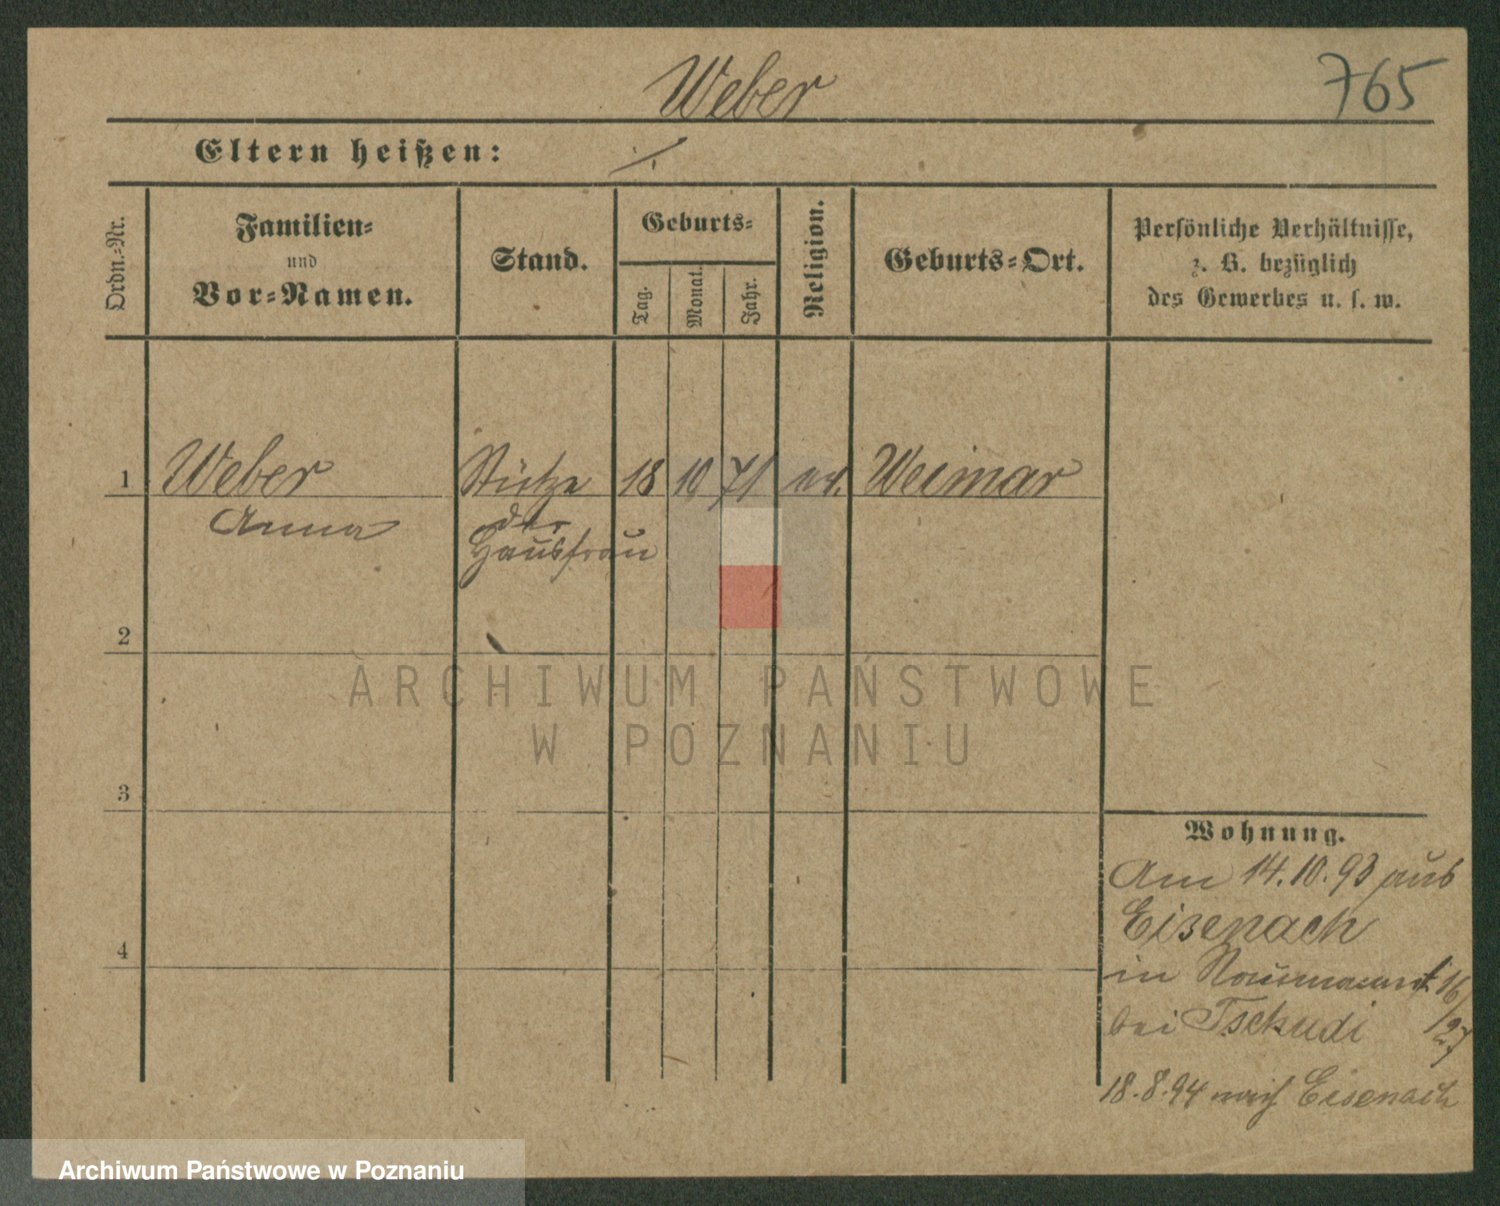 Weber
765
Eltern heißen: ·/·
Ordn.-Nr.
Familien-
und
Vor-Namen.
Stand.
Geburts-
Tag.
Monat.
Jahr.
Religion.
Geburts-Ort.
Persönliche Verhältnisse,
z. B. bezüglich
des Gewerbes u. s. w.
1 Weber Stütze 18 10 71 ev. Weimar
Anna der
Hausfrau
2
3
4
Wohnung.
Am 14.10.93 aus
Eisenach
in Naumannst. 16/27
bei Tschudi
18.8.94 nach Eisenach
ARCHIWUM PAŃSTWOWE
W POZNANIU
Archiwum Państwowe w Poznaniu